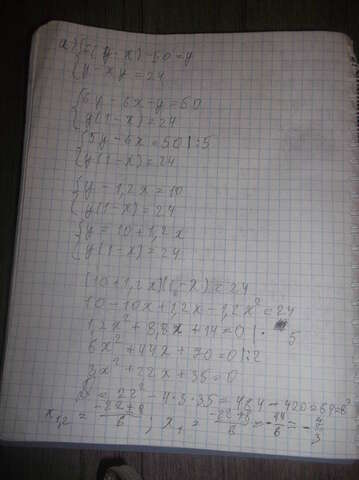 а) { 6(y-x)-50=y
{ y-xy=24
{ 6y-6x-y=50
{ y(1-x)=24
{ 5y-6x=50 |:5
{ y(1-x)=24
{ y-1,2x=10
{ y(1-x)=24
{ y=10+1,2x
{ y(1-x)=24
(10+1,2x)(1-x)=24
10-10x+1,2x-1,2x²=24
1,2x²+8,8x+14=0 |· 5
6x²+44x+70=0 |:2
3x²+22x+35=0
D=22²-4·3·35=484-420=64=8²
x₁,₂ = (-22±8)/6 ; x₁ = (-22+8)/6 = -14/6 = -7/3